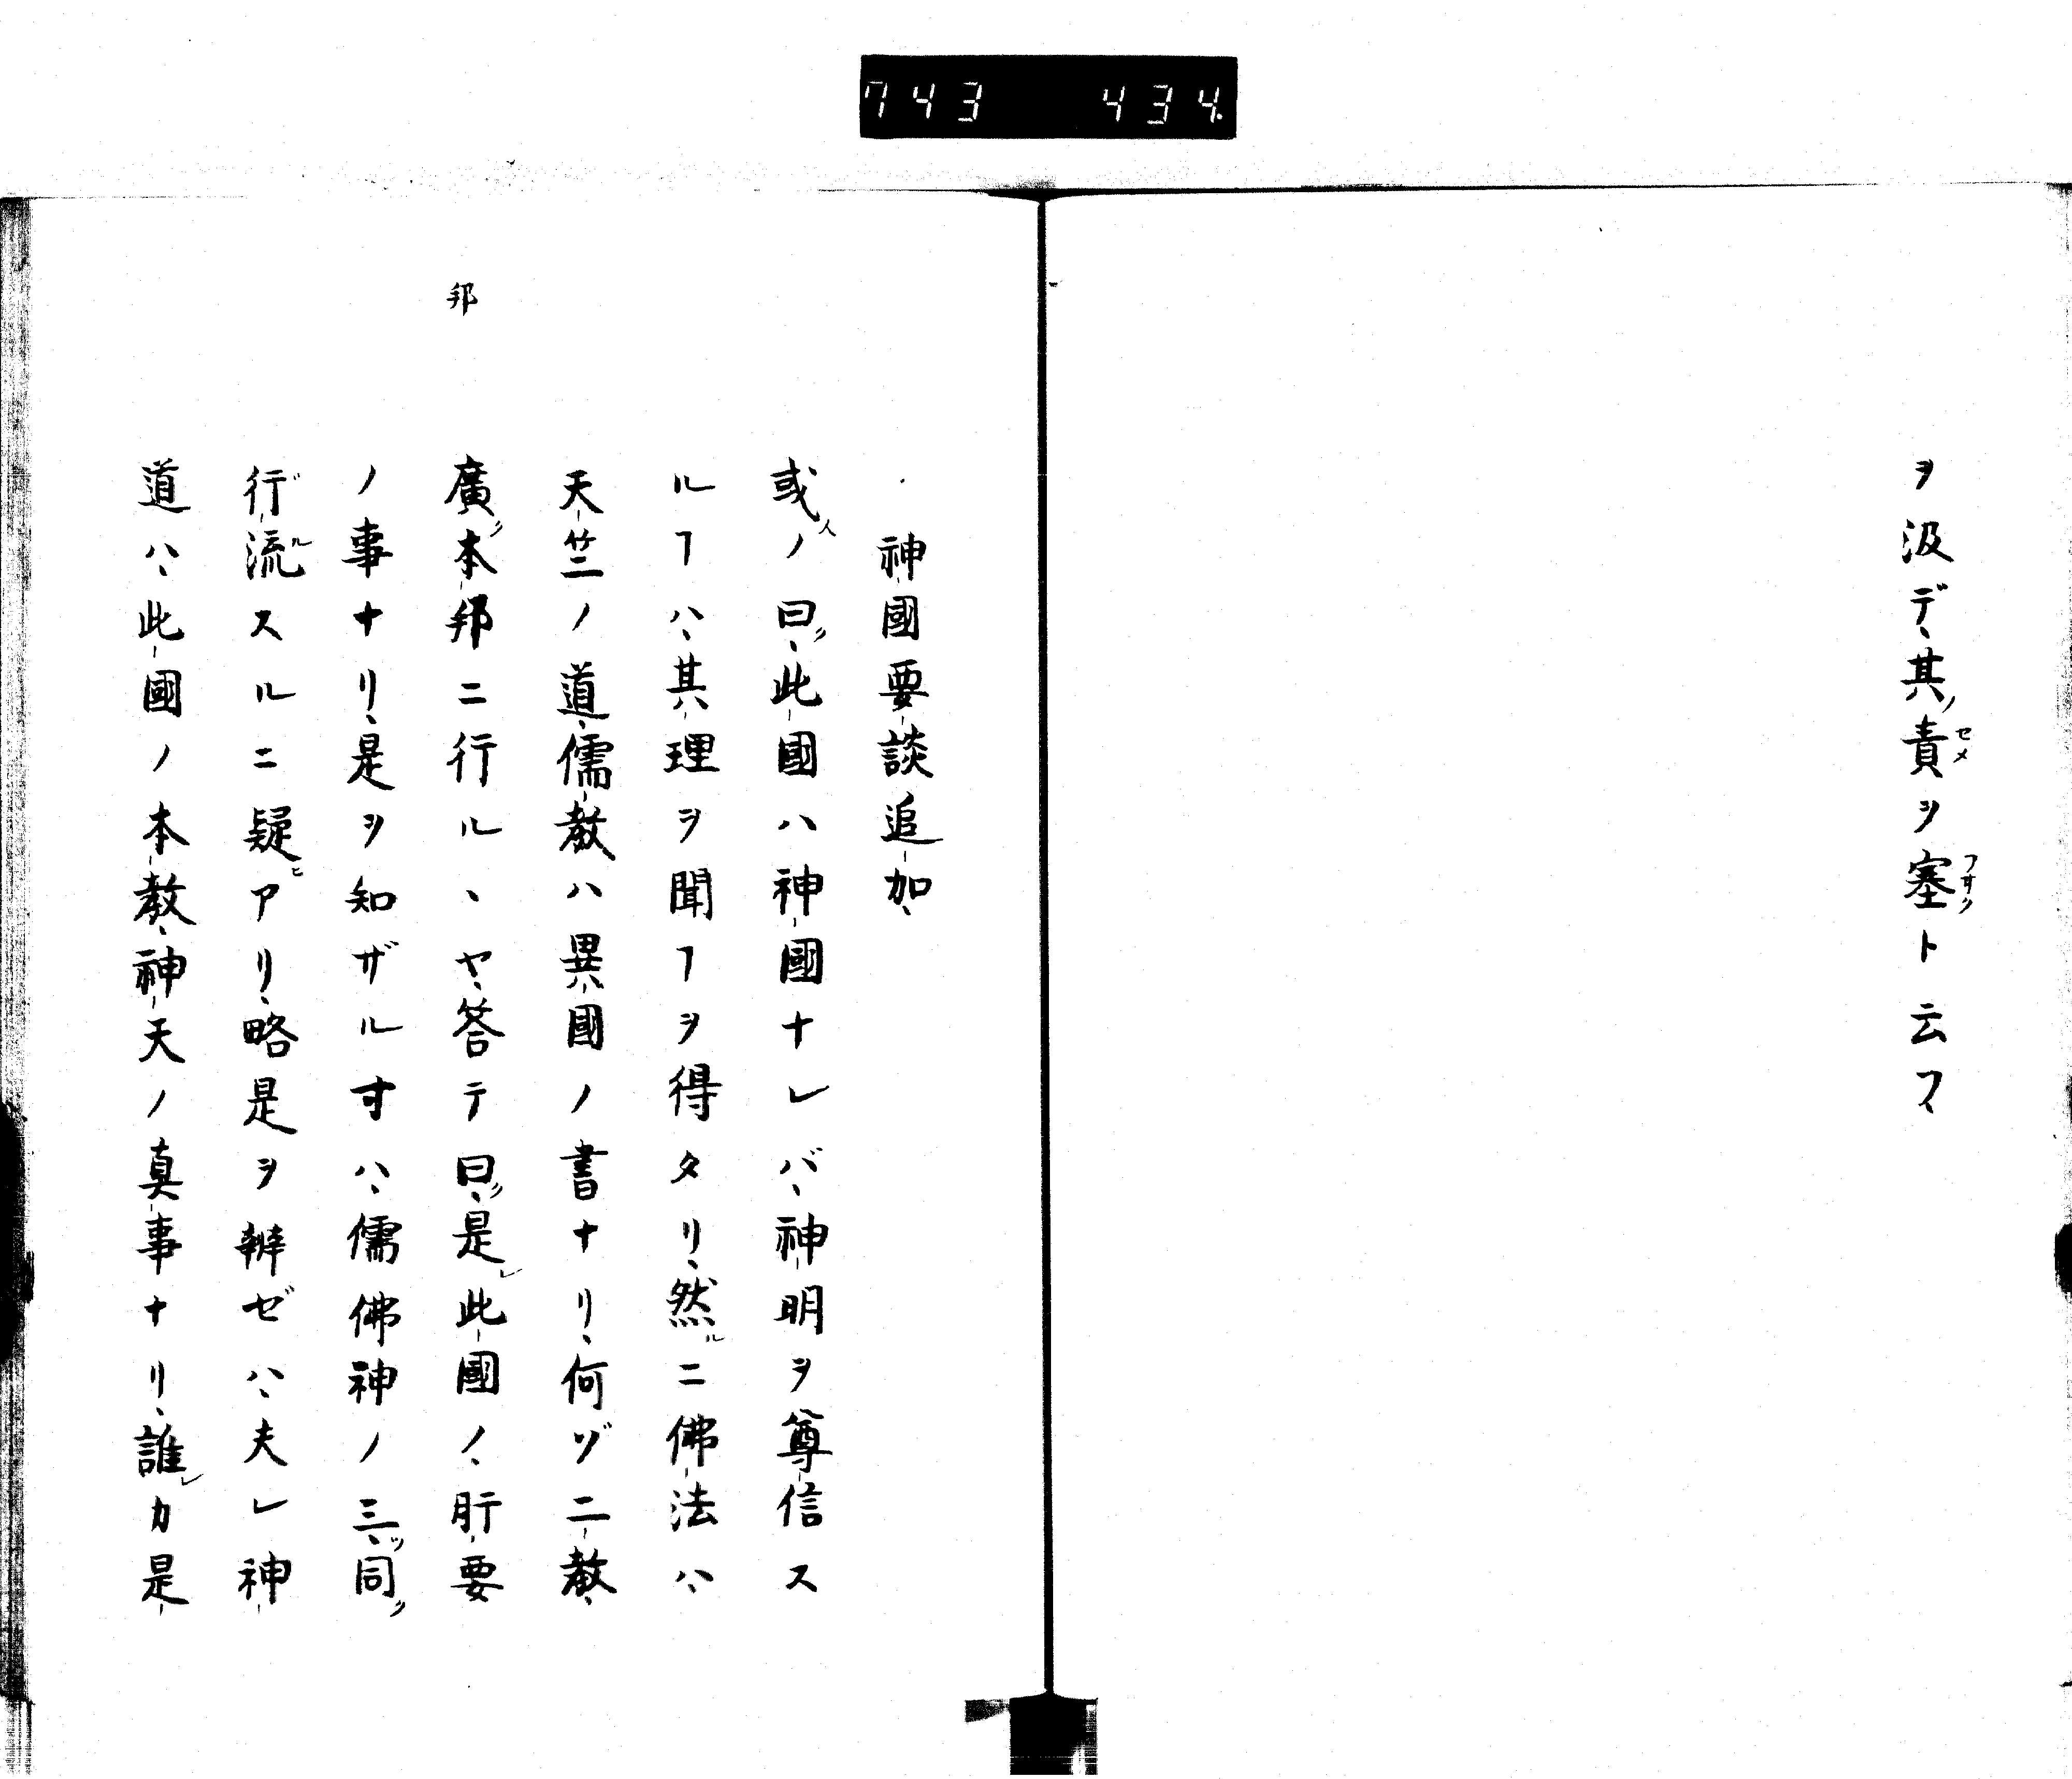 743 434
ヲ汲デ、其ノ責セメヲ塞フサクト云フ、
神國要談追加、
或人ノ曰ク、此國ハ神國ナレバ、神明ヲ尊信ス
ルヿハ、其理ヲ聞ヿヲ得タリ、然ルニ佛法ハ、
天竺ノ道、儒教ハ異國ノ書ナリ、何ゾ二教、
廣ク本邦ニ行ル、ヤ、答テ曰ク、是レ此國ノ、肝要
ノ事ナリ、是ヲ知ザルすハ、儒佛神ノ三ツ、同ク
行流ルスルニ疑ヒアリ、略是ヲ辨ゼハ、夫レ神
道ハ、此國ノ本教、神天ノ真事ナリ、誰レカ是
邦